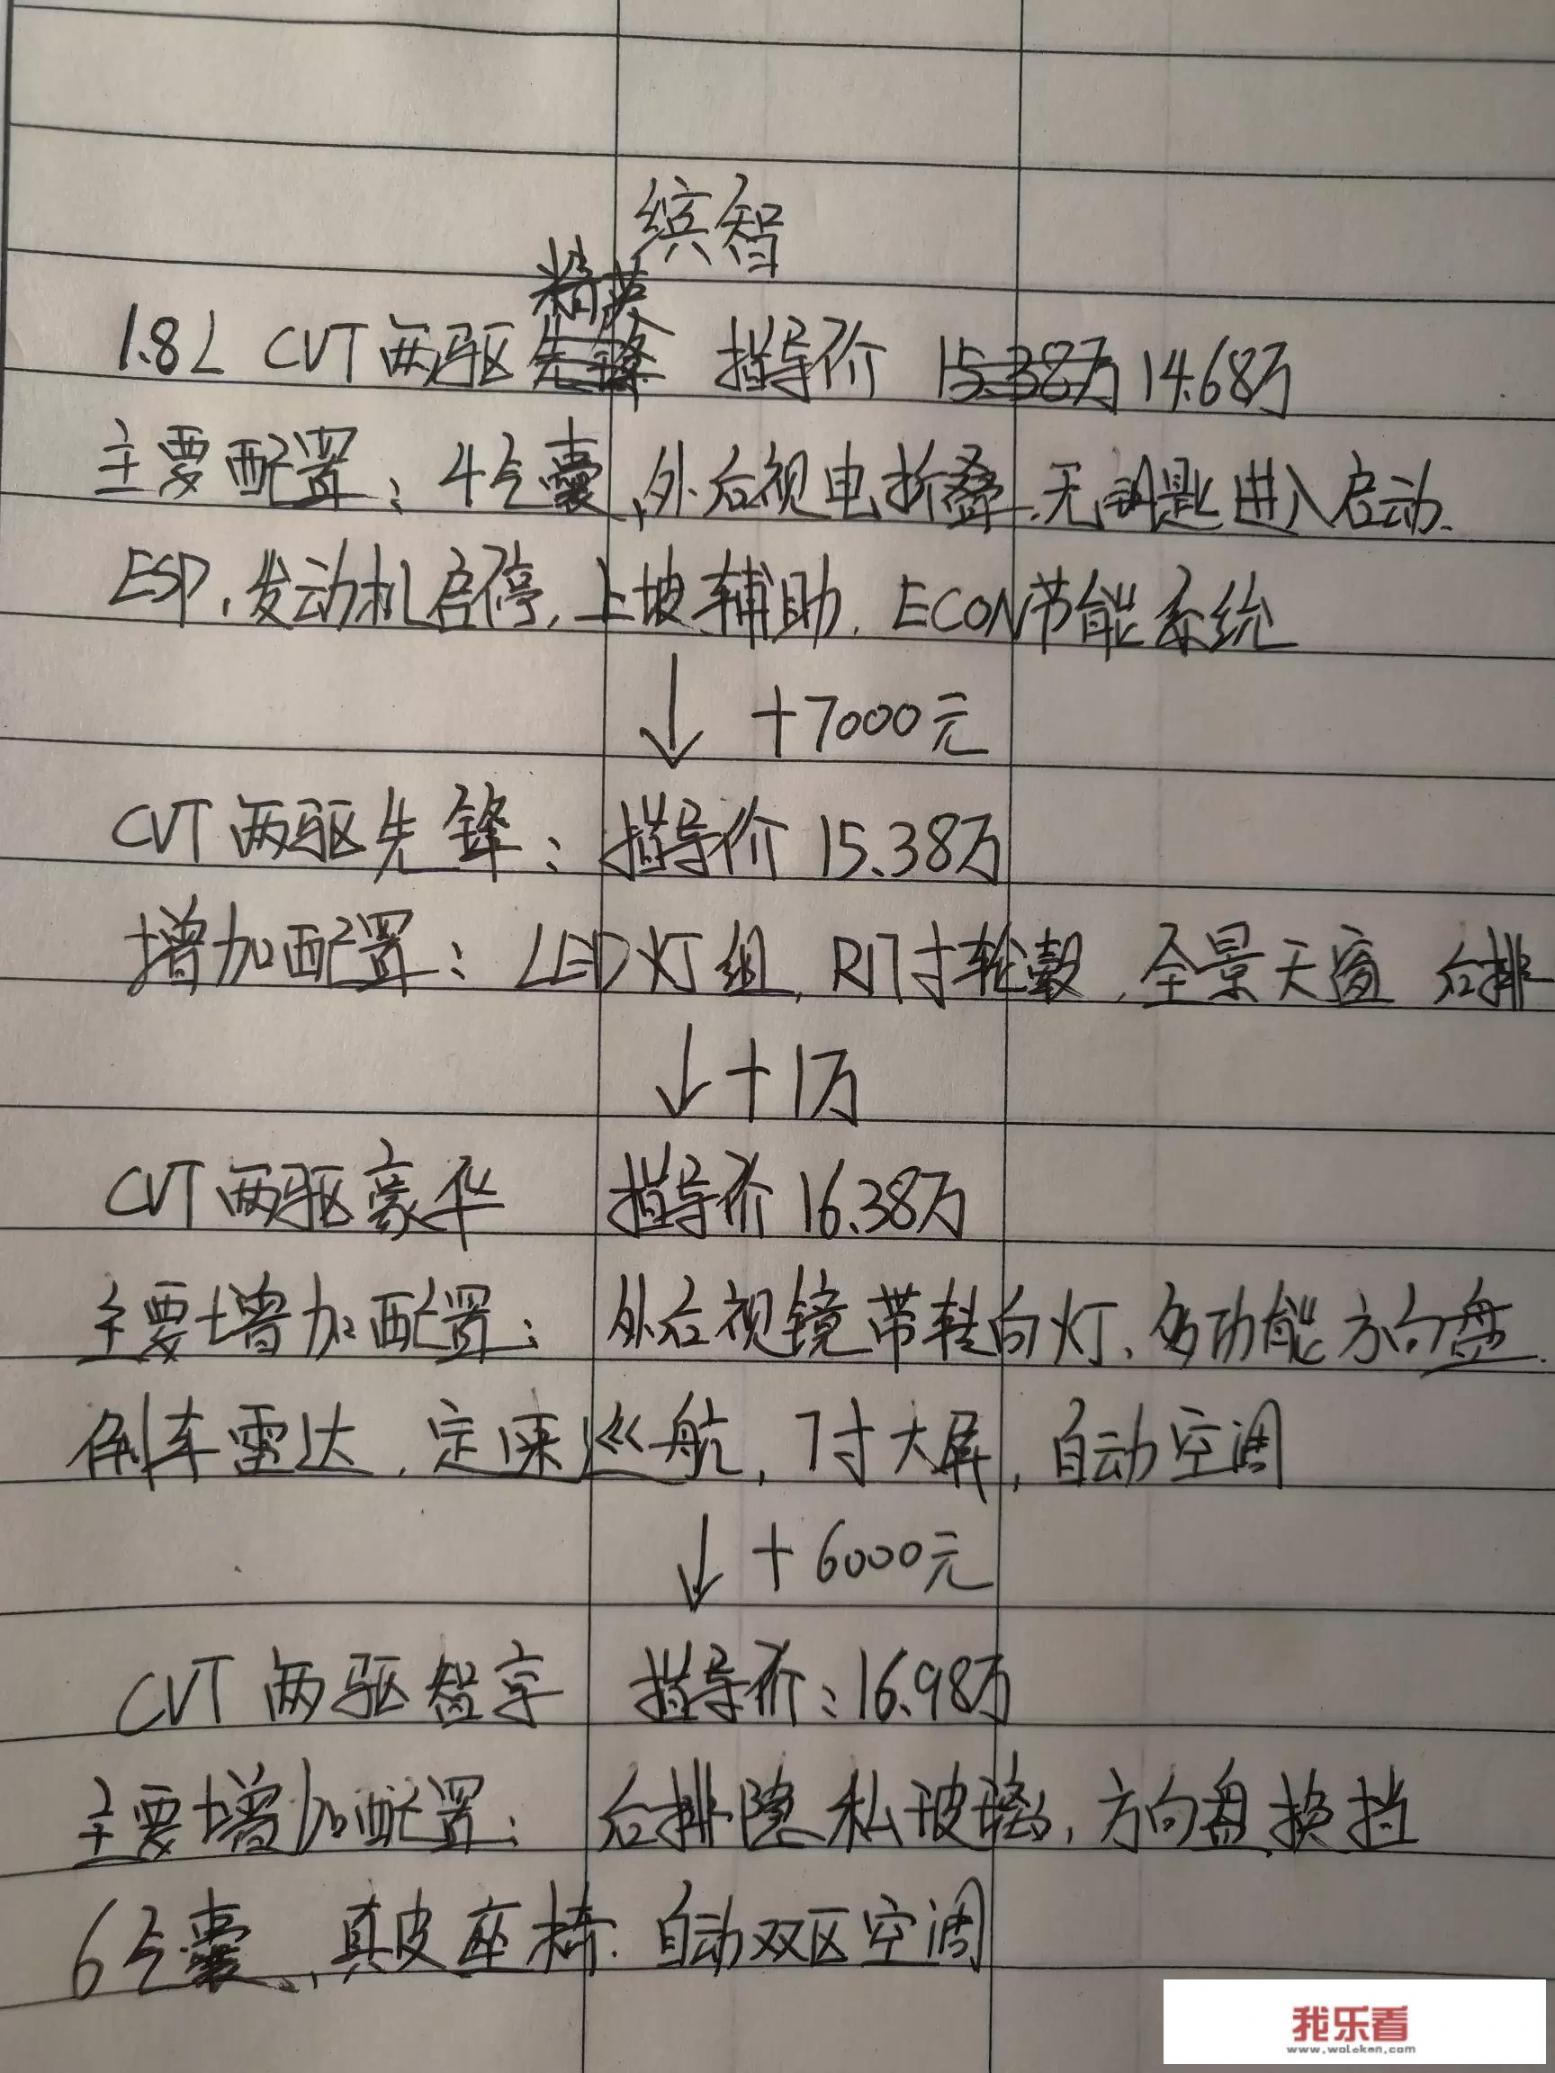 缤智
精英
1.8L CVT两驱先锋 指导价 15.38万 14.68万
主要配置：4气囊、外后视电折叠、无钥匙进入启动、
ESP，发动机启停，上坡辅助，ECON节能系统
↓ +7000元
CVT两驱先锋：指导价 15.38万
增加配置：LED灯组，R17寸轮毂，全景天窗 后排
↓+1万
CVT两驱豪华 指导价 16.38万
主要增加配置：外后视镜带转向灯、多功能方向盘、
倒车雷达，定速巡航，7寸大屏，自动空调
↓ +6000元
CVT两驱智享 指导价：16.98万
主要增加配置：后排隐私玻璃，方向盘换挡
6气囊、真皮座椅、自动双区空调
我乐看
www.woleken.com